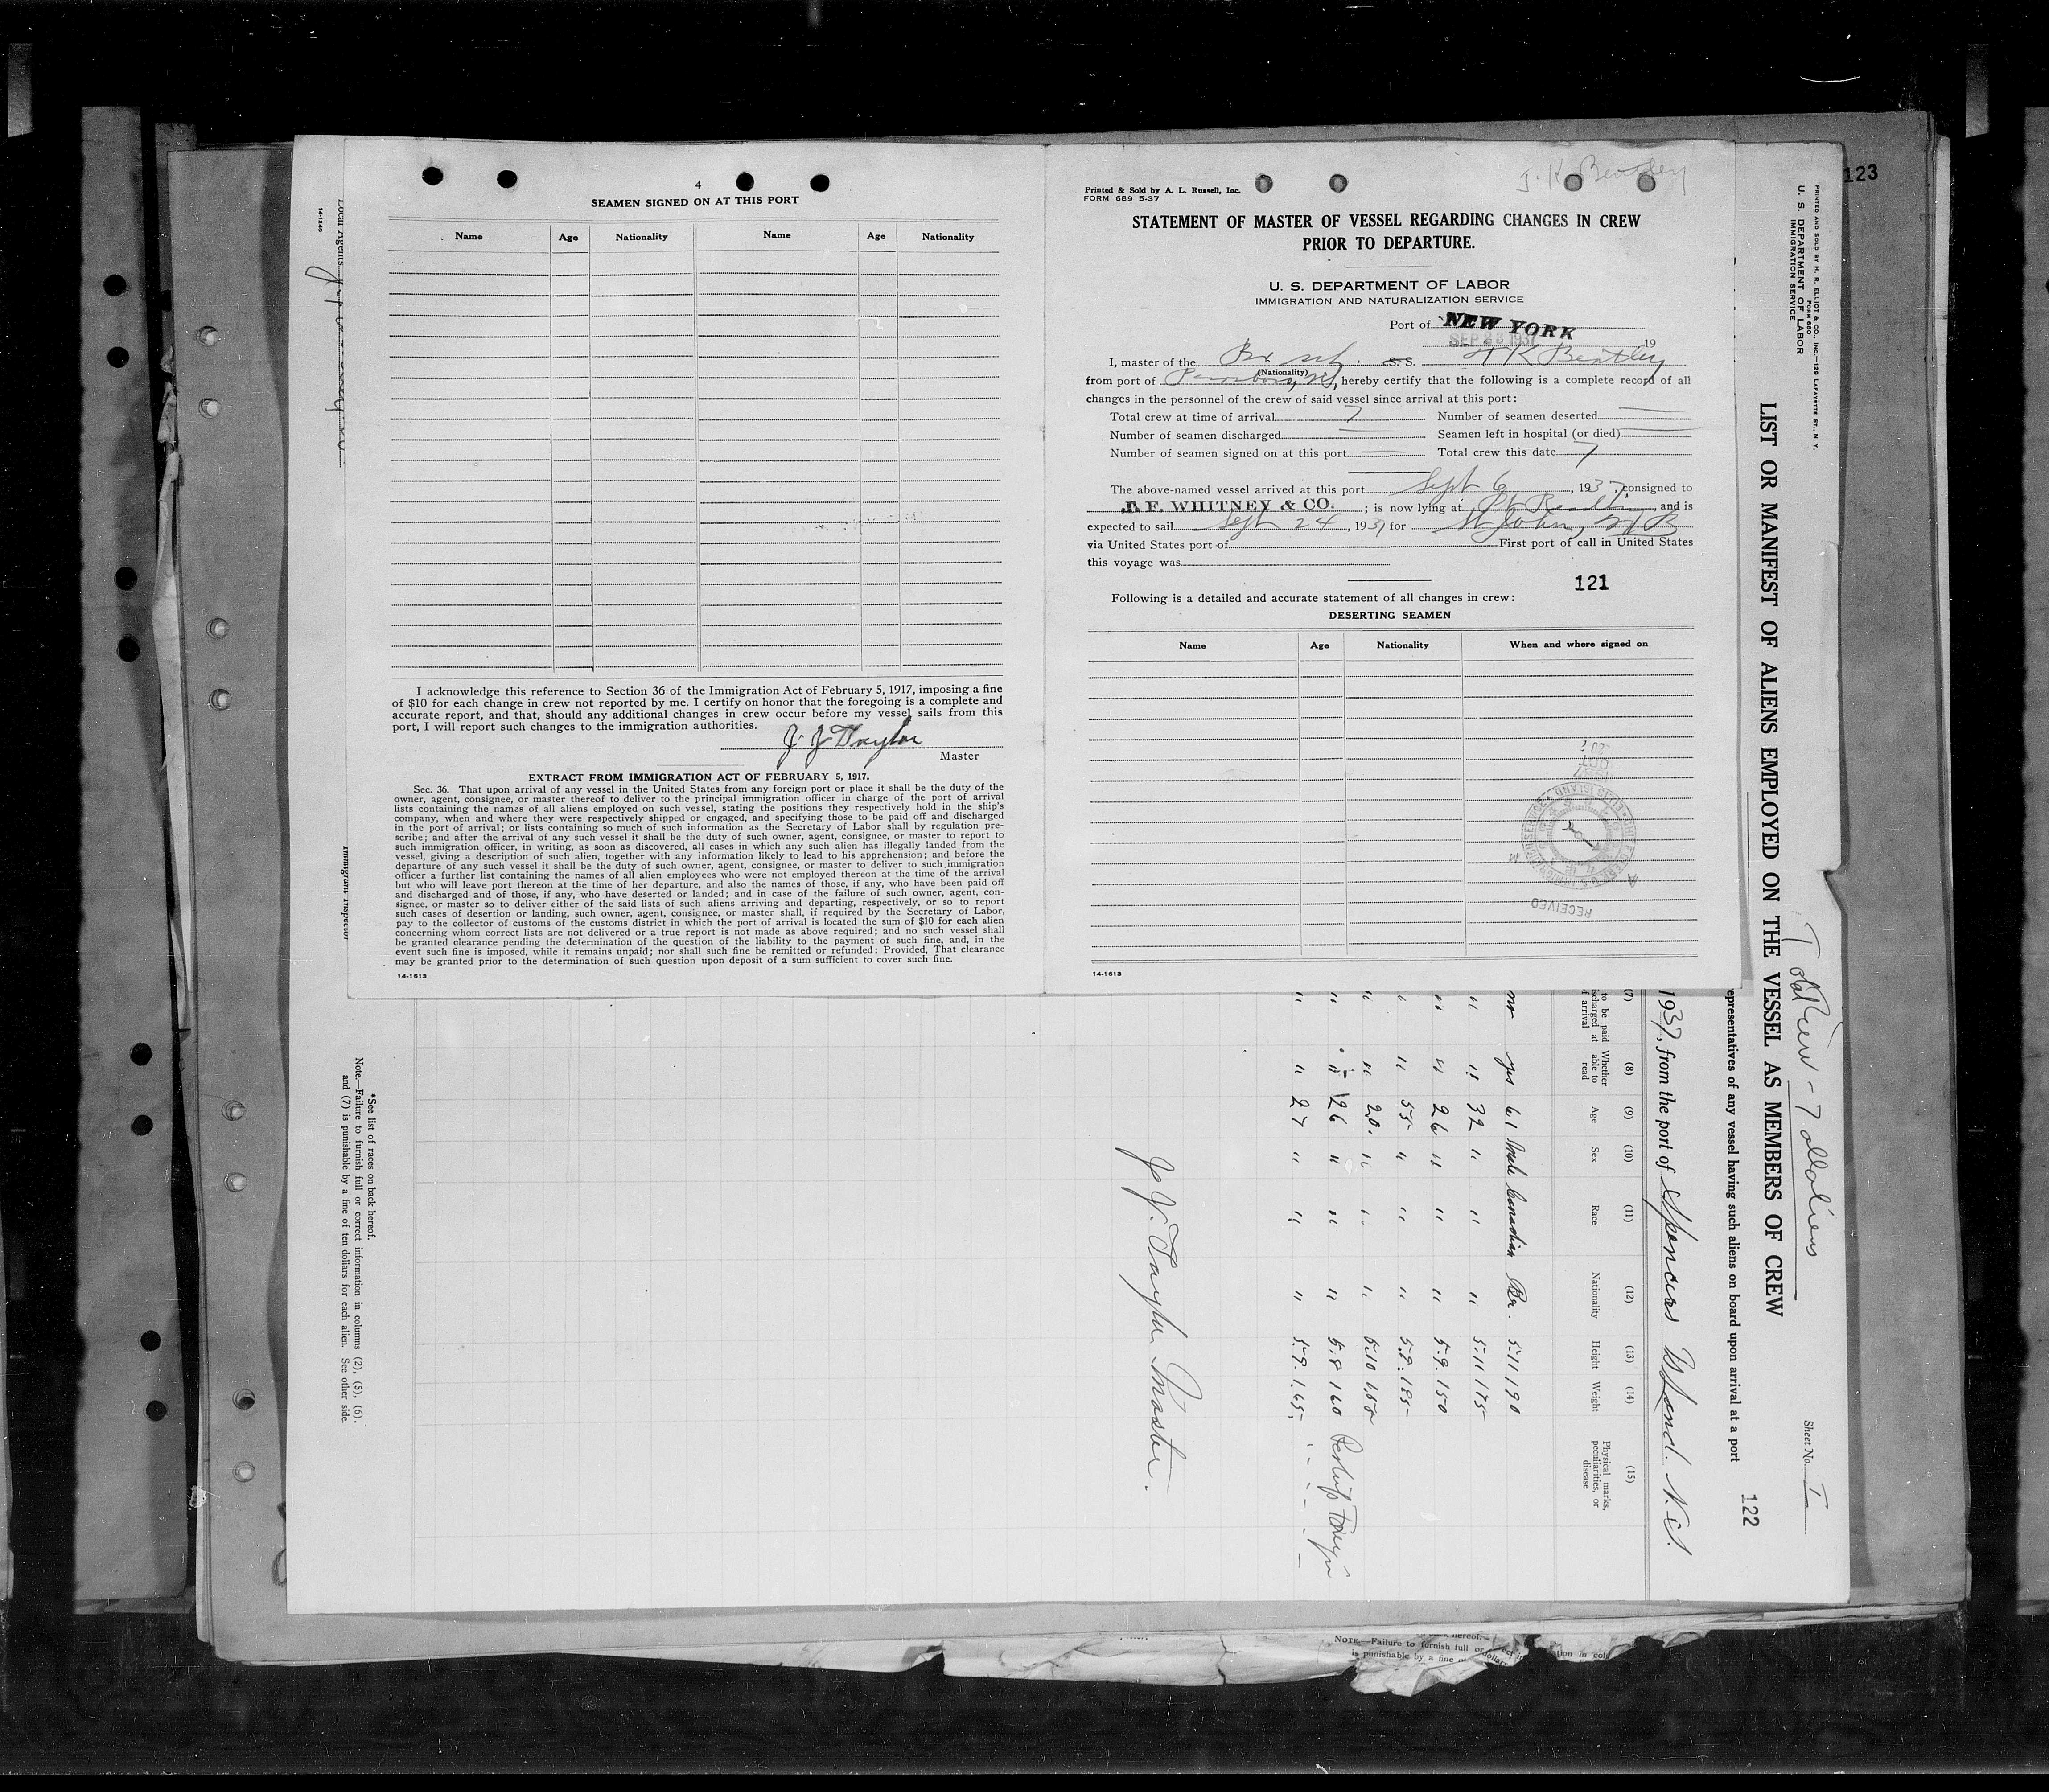 4
SEAMEN SIGNED ON AT THIS PORT
Name Age Nationality Name Age Nationality
I acknowledge this reference to Section 36 of the Immigration Act of February 5, 1917, imposing a fine
of $10 for each change in crew not reported by me. I certify on honor that the foregoing is a complete and
accurate report, and that, should any additional changes in crew occur before my vessel sails from this
port, I will report such changes to the immigration authorities.
J. J Taylor
Master
EXTRACT FROM IMMIGRATION ACT OF FEBRUARY 5, 1917.
Sec. 36. That upon arrival of any vessel in the United States from any foreign port or place it shall be the duty of the
owner, agent, consignee, or master thereof to deliver to the principal immigration officer in charge of the port of arrival
lists containing the names of all aliens employed on such vessel, stating the positions they respectively hold in the ship's
company, when and where they were respectively shipped or engaged, and specifying those to be paid off and discharged
in the port of arrival; or lists containing so much of such information as the Secretary of Labor shall by regulation pre-
scribe; and after the arrival of any such vessel it shall be the duty of such owner, agent, consignee, or master to report to
such immigration officer, in writing, as soon as discovered, all cases in which any such alien has illegally landed from the
vessel, giving a description of such alien, together with any information likely to lead to his apprehension; and before the
departure of any such vessel it shall be the duty of such owner, agent, consignee, or master to deliver to such immigration
officer a further list containing the names of all alien employees who were not employed thereon at the time of the arrival
but who will leave port thereon at the time of her departure, and also the names of those, if any, who have been paid off
and discharged and of those, if any, who have deserted or landed; and in case of the failure of such owner, agent, con-
signee, or master so to deliver either of the said lists of such aliens arriving and departing, respectively, or so to report
such cases of desertion or landing, such owner, agent, consignee, or master shall, if required by the Secretary of Labor,
pay to the collector of customs of the customs district in which the port of arrival is located the sum of $10 for each alien
concerning whom correct lists are not delivered or a true report is not made as above required; and no such vessel shall
be granted clearance pending the determination of the question of the liability to the payment of such fine, and, in the
event such fine is imposed, while it remains unpaid; nor shall such fine be remitted or refunded: Provided, That clearance
may be granted prior to the determination of such question upon deposit of a sum sufficient to cover such fine.
14-1613
J. K Bentley
Printed & Sold by A. L. Russell, Inc.
FORM 689 5-37
STATEMENT OF MASTER OF VESSEL REGARDING CHANGES IN CREW
PRIOR TO DEPARTURE.
U. S. DEPARTMENT OF LABOR
IMMIGRATION AND NATURALIZATION SERVICE
Port of NEW YORK
SEP 23 1937 19
I, master of the Br sch. S. S. K Bentley
(Nationality)
from port of Parrsboro, NS, hereby certify that the following is a complete record of all
changes in the personnel of the crew of said vessel since arrival at this port:
Total crew at time of arrival 7 Number of seamen deserted
Number of seamen discharged Seamen left in hospital (or died)
Number of seamen signed on at this port Total crew this date 7
The above-named vessel arrived at this port Sept 6, 1937, consigned to
J. F. WHITNEY & CO.; is now lying at Pt Reading, and is
expected to sail Sept 24, 1937 for St John, N B
via United States port of First port of call in United States
this voyage was
121
Following is a detailed and accurate statement of all changes in crew:
DESERTING SEAMEN
Name Age Nationality When and where signed on
RECEIVED
14-1613
123
PRINTED AND SOLD BY H. R. ELLIOT & CO., INC.—129 LAFAYETTE ST., N. Y.
FORM 680
U. S. DEPARTMENT OF LABOR
IMMIGRATION SERVICE
Total Crew - 7 all aliens
Sheet No. I
LIST OR MANIFEST OF ALIENS EMPLOYED ON THE VESSEL AS MEMBERS OF CREW
122
epresentatives of any vessel having such aliens on board upon arrival at a port
1937, from the port of Spencers Island. N.S.
(7) (8) (9) (10) (11) (12) (13) (14) (15)
to be paid
ischarged at
f arrival
Whether able to read
Age
Sex
Race
Nationality
Height
Weight
Physical marks, peculiarities, or disease
no yes 61 Male Canadian Br. 5.11 190
" " 32 " " " 5.11 175
" " 26 " " " 5.9. 150
" " 55 " " " 5.8. 185
" " 20. " " " 5.10 155
" " 26 " " " 5.8 160
" " 27 " " " 5.9. 165
J. J. Taylor Master.
*See list of races on back hereof.
Note.—Failure to furnish full or correct information in columns (2), (5), (6),
and (7) is punishable by a fine of ten dollars for each alien. See other side.
Local Agents
14-1240
Immigrant Inspector
NOTE.—Failure to furnish full or
is punishable by a fine